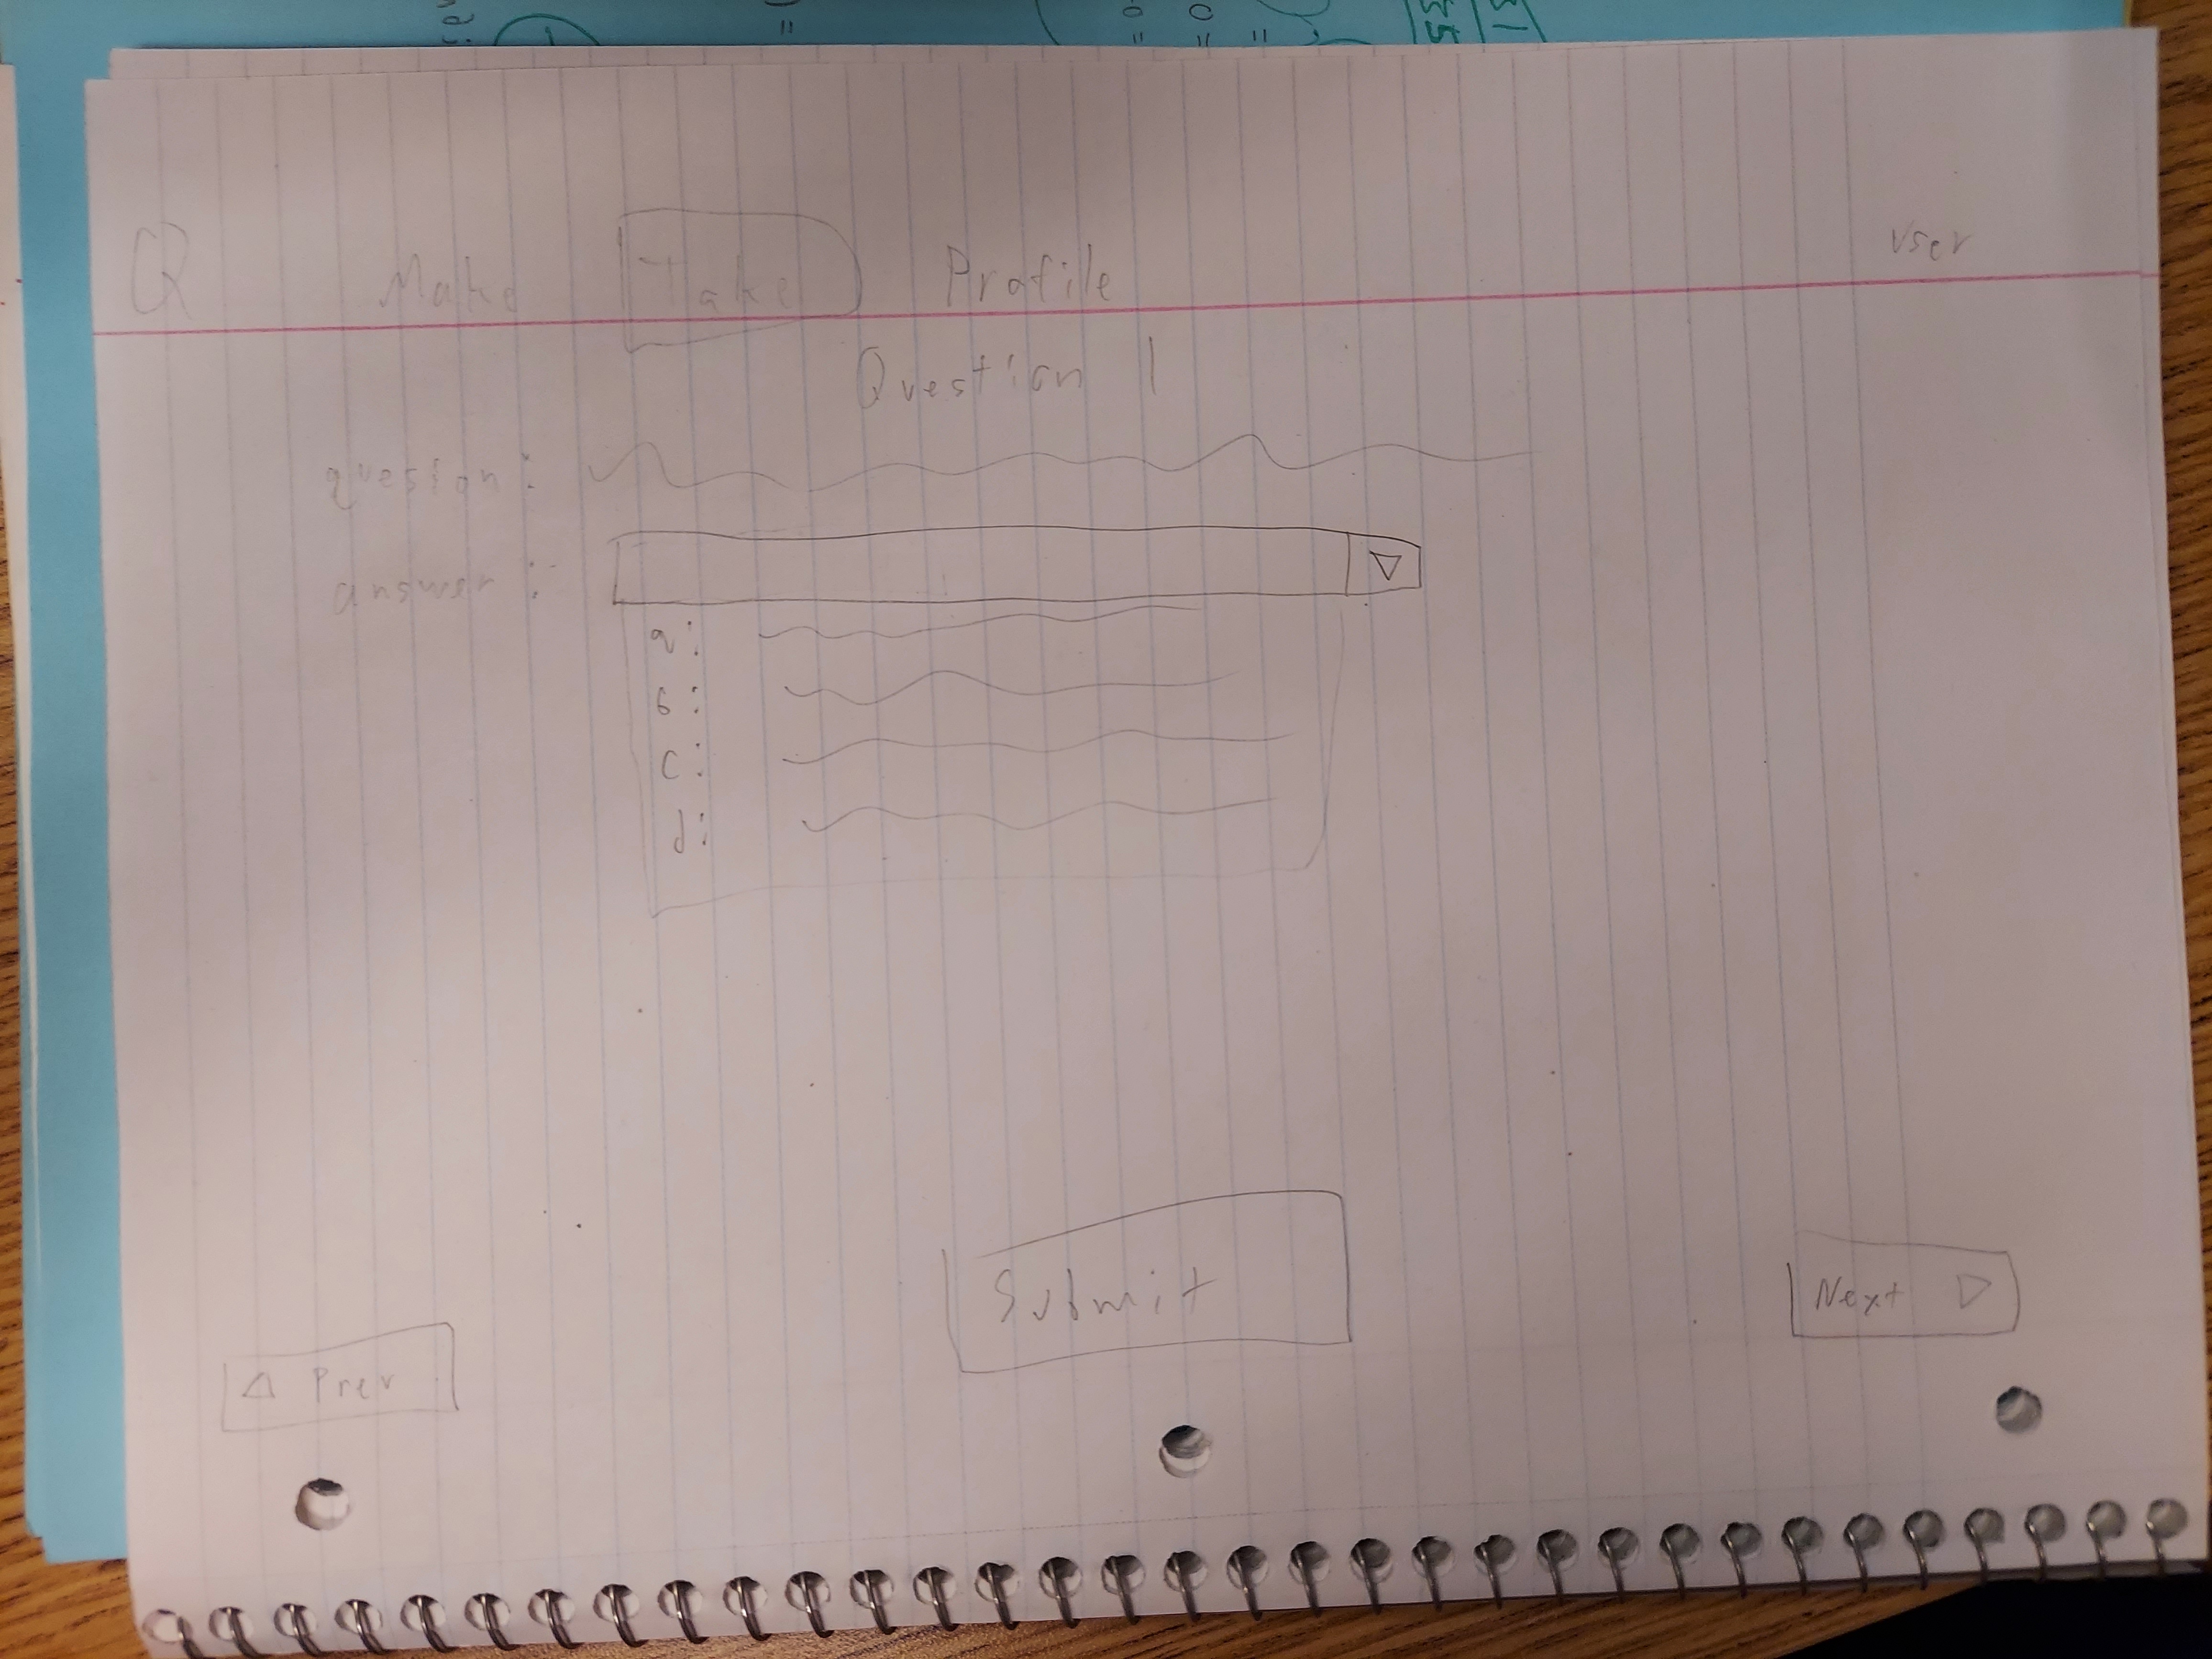 Make Take Profile User
Question 1
question:
answer:
a:
b:
c:
d:
Submit
Prev
Next